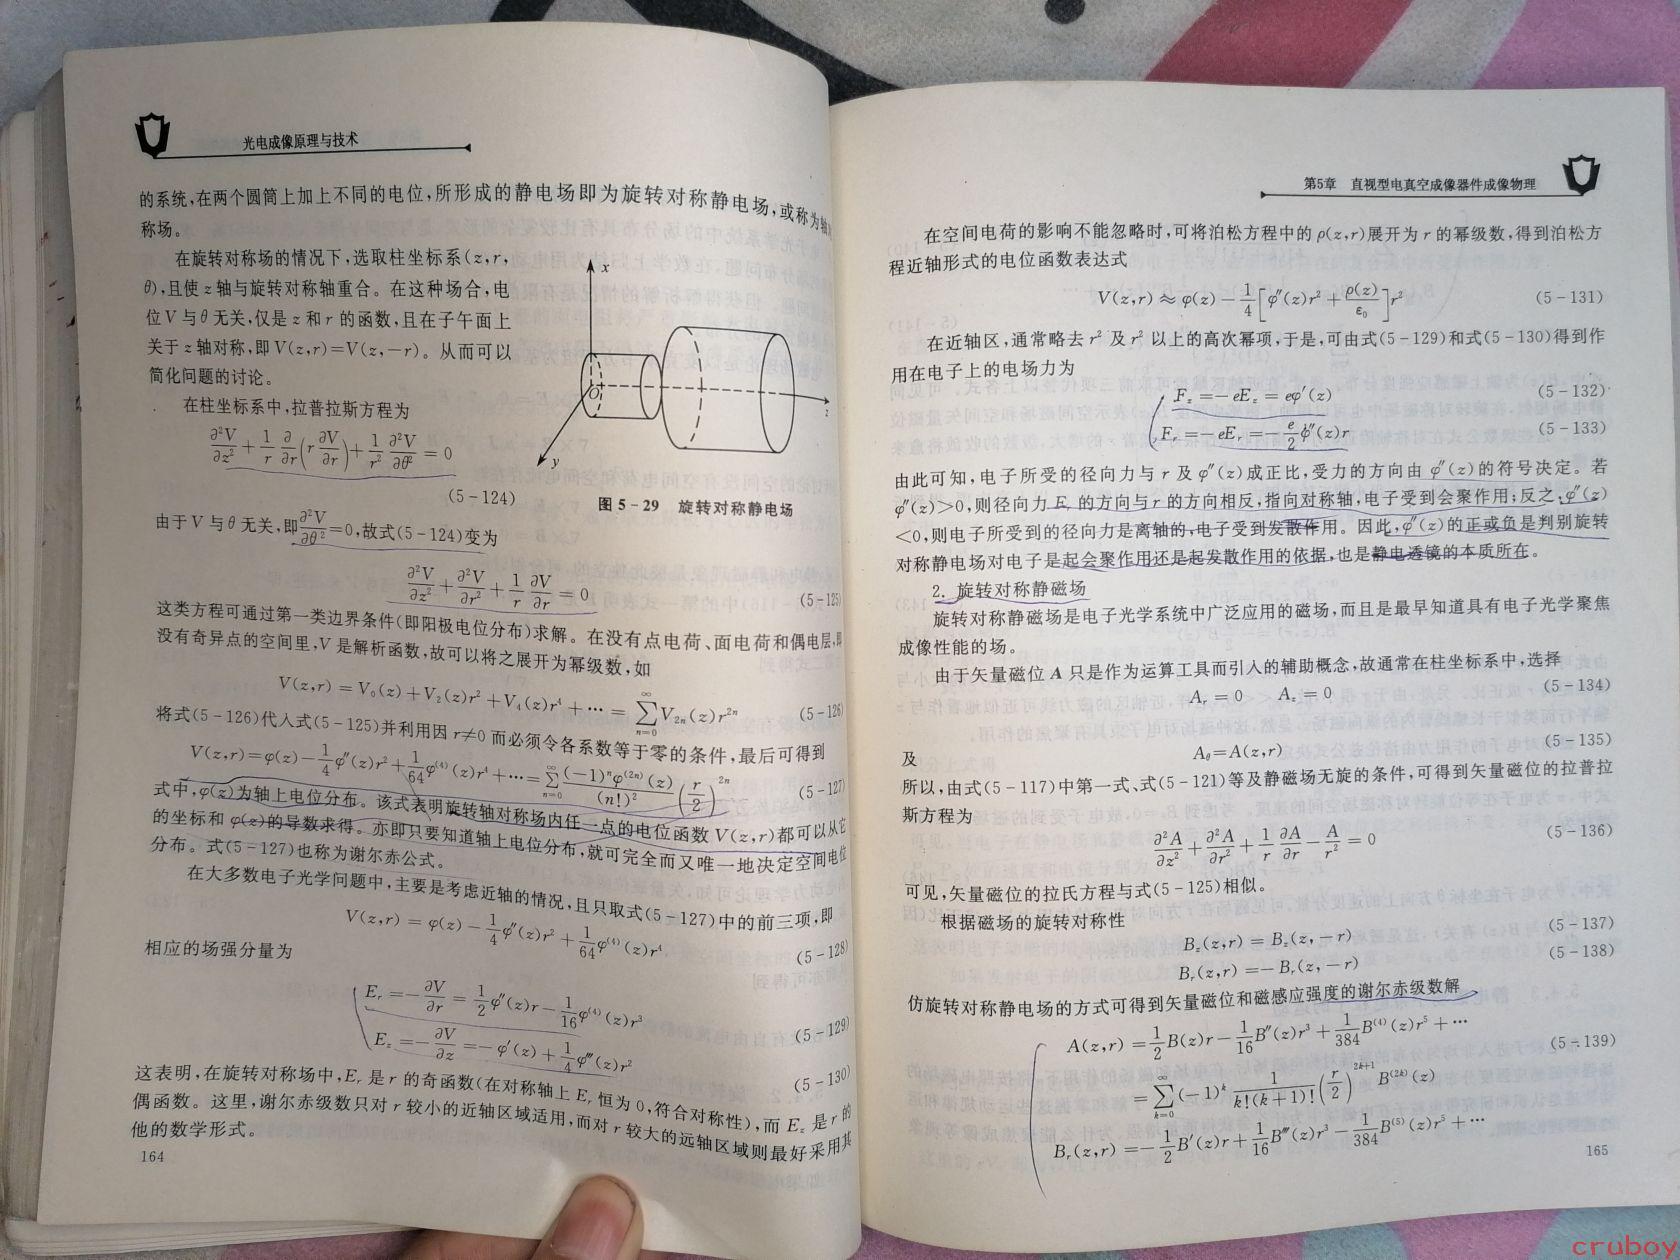 光电成像原理与技术
的系统,在两个圆筒上加上不同的电位,所形成的静电场即为旋转对称静电场,或称为轴对
称场。
在旋转对称场的情况下,选取柱坐标系(z,r,
θ),且使z轴与旋转对称轴重合。在这种场合,电
位V与θ无关,仅是z和r的函数,且在子午面上
关于z轴对称,即V(z,r)=V(z,-r)。从而可以
简化问题的讨论。
在柱坐标系中,拉普拉斯方程为
∂²V/∂z² + 1/r ∂/∂r(r ∂V/∂r) + 1/r² ∂²V/∂θ² = 0
(5-124)
x
O
z
y
图5-29 旋转对称静电场
由于V与θ无关,即∂²V/∂θ²=0,故式(5-124)变为
∂²V/∂z² + ∂²V/∂r² + 1/r ∂V/∂r = 0 (5-125)
这类方程可通过第一类边界条件(即阳极电位分布)求解。在没有点电荷、面电荷和偶电层,即
没有奇异点的空间里,V是解析函数,故可以将之展开为幂级数,如
V(z,r) = V₀(z)+V₂(z)r²+V₄(z)r⁴+⋯ = ∑(n=0→∞) V₂ₙ(z)r²ⁿ (5-126)
将式(5-126)代入式(5-125)并利用因r≠0而必须令各系数等于零的条件,最后可得到
V(z,r)=φ(z)-1/4 φ″(z)r²+1/64 φ⁽⁴⁾(z)r⁴+⋯=∑(n=0→∞) (-1)ⁿφ⁽²ⁿ⁾(z)/(n!)² (r/2)²ⁿ (5-127)
式中,φ(z)为轴上电位分布。该式表明旋转轴对称场内任一点的电位函数V(z,r)都可以从它
的坐标和φ(z)的导数求得。亦即只要知道轴上电位分布,就可完全而又唯一地决定空间电位
分布。式(5-127)也称为谢尔赤公式。
在大多数电子光学问题中,主要是考虑近轴的情况,且只取式(5-127)中的前三项,即
V(z,r) = φ(z)-1/4 φ″(z)r²+1/64 φ⁽⁴⁾(z)r⁴. (5-128)
相应的场强分量为
Eᵣ=-∂V/∂r = 1/2 φ″(z)r-1/16 φ⁽⁴⁾(z)r³ (5-129)
E_z=-∂V/∂z=-φ′(z)+1/4 φ‴(z)r² (5-130)
这表明,在旋转对称场中,Eᵣ是r的奇函数(在对称轴上Eᵣ恒为0,符合对称性),而E_z是r的
偶函数。这里,谢尔赤级数只对r较小的近轴区域适用,而对r较大的远轴区域则最好采用其
他的数学形式。
164
第5章 直视型电真空成像器件成像物理
在空间电荷的影响不能忽略时,可将泊松方程中的ρ(z,r)展开为r的幂级数,得到泊松方
程近轴形式的电位函数表达式
V(z,r)≈φ(z)-1/4[φ″(z)r²+ρ(z)/ε₀]r² (5-131)
在近轴区,通常略去r²及r²以上的高次幂项,于是,可由式(5-129)和式(5-130)得到作
用在电子上的电场力为
F_z=-eE_z=eφ′(z) (5-132)
Fᵣ=-eEᵣ=-e/2 φ″(z)r (5-133)
由此可知,电子所受的径向力与r及φ″(z)成正比,受力的方向由φ″(z)的符号决定。若
φ″(z)>0,则径向力Fᵣ的方向与r的方向相反,指向对称轴,电子受到会聚作用;反之,φ″(z)
<0,则电子所受到的径向力是离轴的,电子受到发散作用。因此,φ″(z)的正或负是判别旋转
对称静电场对电子是起会聚作用还是起发散作用的依据,也是静电透镜的本质所在。
2. 旋转对称静磁场
旋转对称静磁场是电子光学系统中广泛应用的磁场,而且是最早知道具有电子光学聚焦
成像性能的场。
由于矢量磁位A只是作为运算工具而引入的辅助概念,故通常在柱坐标系中,选择
Aᵣ=0 A_z=0 (5-134)
及 A_θ=A(z,r) (5-135)
所以,由式(5-117)中第一式、式(5-121)等及静磁场无旋的条件,可得到矢量磁位的拉普拉
斯方程为
∂²A/∂z² + ∂²A/∂r² + 1/r ∂A/∂r - A/r² = 0 (5-136)
可见,矢量磁位的拉氏方程与式(5-125)相似。
根据磁场的旋转对称性
B_z(z,r) = B_z(z,-r) (5-137)
Bᵣ(z,r) =-Bᵣ(z,-r) (5-138)
仿旋转对称静电场的方式可得到矢量磁位和磁感应强度的谢尔赤级数解
A(z,r)=1/2 B(z)r-1/16 B″(z)r³+1/384 B⁽⁴⁾(z)r⁵+⋯ (5-139)
=∑(k=0→∞) (-1)ᵏ 1/(k!(k+1)!) (r/2)²ᵏ⁺¹ B⁽²ᵏ⁾(z)
Bᵣ(z,r)=-1/2 B′(z)r+1/16 B‴(z)r³-1/384 B⁽⁵⁾(z)r⁵+⋯
165
cruboy